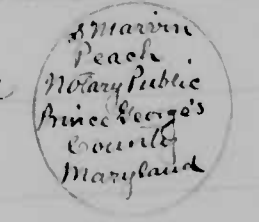 S Marvin
Peach
Notary Public
Prince George's
County
Maryland